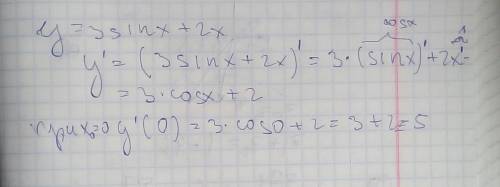 y = 3sinx + 2x
cosx
y' = (3sinx + 2x)' = 3·(sinx)' + 2x' =
= 3·cosx + 2
при x₀=0 y'(0) = 3·cos0 + 2 = 3 + 2 = 5